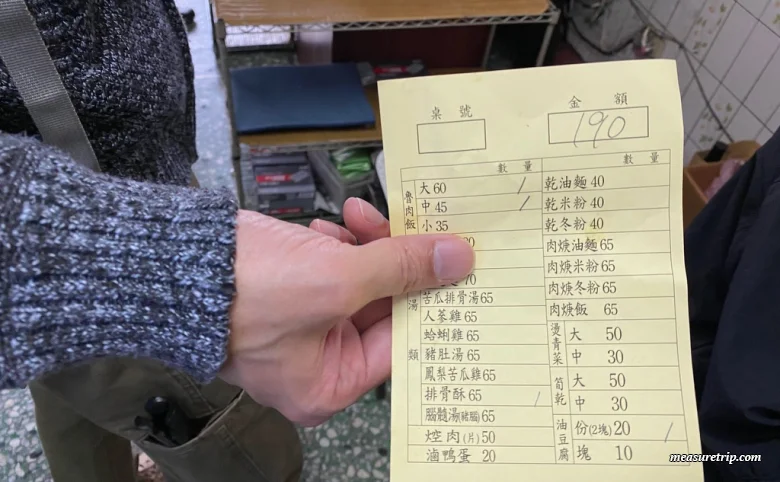 桌號
金額
190
數量
數量
魯肉飯
大60 /
中45 /
小35
70
湯類
苦瓜排骨湯65
人蔘雞65
蛤蜊雞65
豬肚湯65
鳳梨苦瓜雞65
排骨酥65 /
腦髓湯(豬腦)65
焢肉(片)50
滷鴨蛋 20
乾油麵40
乾米粉40
乾冬粉40
肉焿油麵65
肉焿米粉65
肉焿冬粉65
肉焿飯 65
燙青菜
大 50
中 30
筍乾
大 50
中 30
油豆腐
份(2塊)20 /
塊 10
measuretrip.com